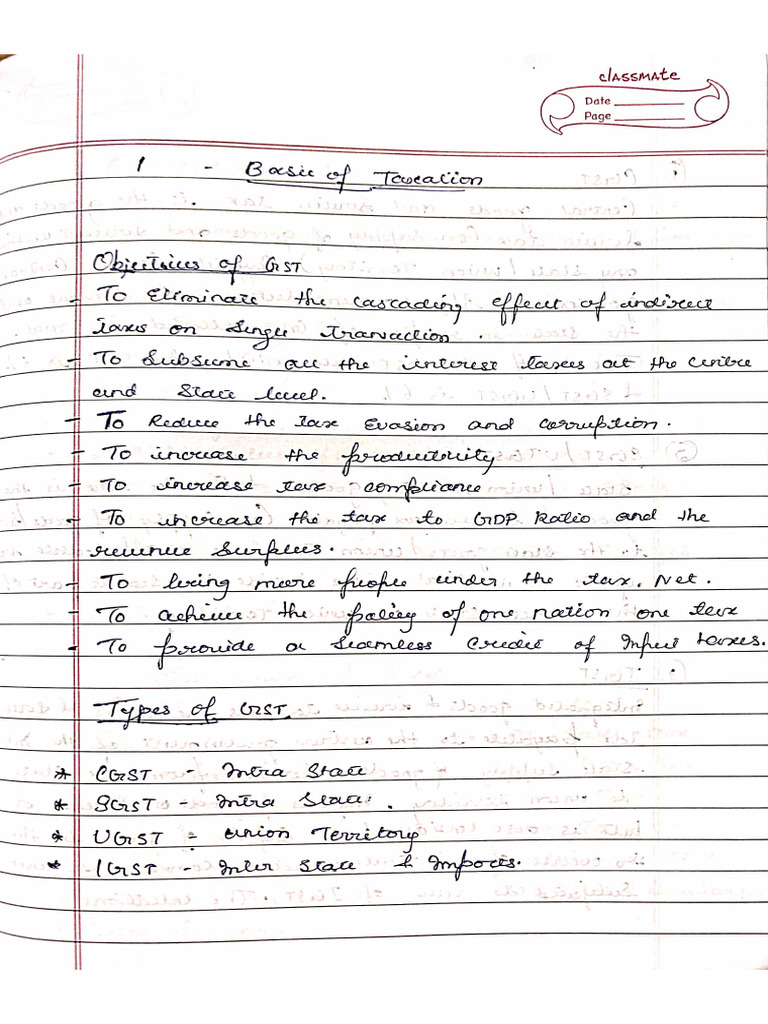 classmate
Date
Page
1 - Basic of Taxation
Objectives of GST
- To Eliminate the cascading effect of indirect
taxes on Single Transaction.
- To Subsume all the interest taxes at the Centre
and State level.
- To Reduce the tax Evasion and corruption.
- To increase the productivity
- To increase tax compliance
- To increase the tax to GDP Ratio and the
revenue Surplus.
- To bring more people under the tax. Net.
- To achieve the policy of one nation one tax
- To provide a Seamless Credit of Input taxes.
Types of GST
* CGST - Intra State
* SGST - Intra State.
* UGST = Union Territory
* IGST - Inter State & Imports.